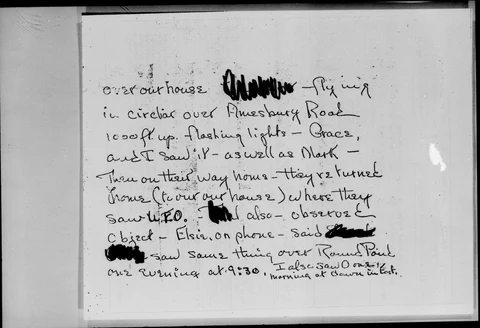 over our house flying
in circular over Amesbury Road
1000 ft. up. flashing lights - Grace,
and I saw it - as well as Mark -
Then on their way home - they returned
home (to our our house) where they
saw U.F.O. also - observed
object - Elsie, on phone - said
saw same thing over Round Pond
one evening at 9:30. I also saw one
morning at dawn in East.